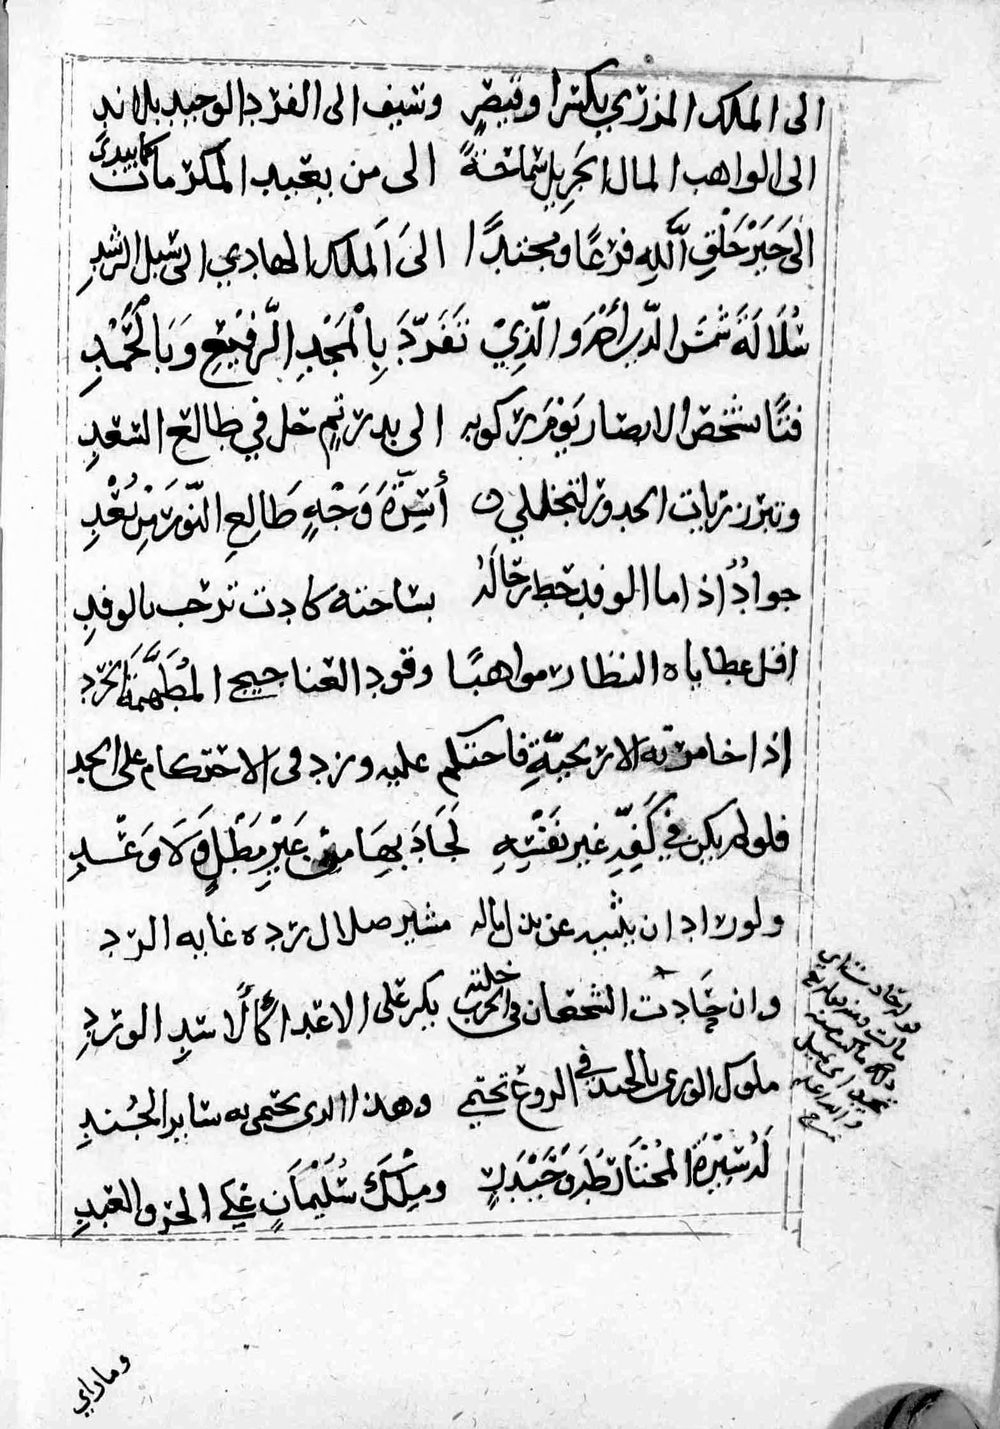 الى الملك المزري بكسرا وقيصر وسيف الى الفرد الوحيد بلا ند
الى الواهب المال الجزيل سماحةً الى من بعيد المكرمات كما يبدي
الى خَيْرِ خَلْقِ اللهِ فرعًا ومحتدًا الىَ اَلملك الهادي الى سبل الرشدِ
سُلَالَةَ شمسَ الدّين أحمد والّذِيْ تَفَرّدَ بِالْمَجْدِ الرَّفِيْعِ وَبَالْحَمْدِ
فتًا شخص الابصار يوم ركوبه الى بدر تم حل في طالع السّعدِ
وتبرز ربات الخدور لتجتلي أسِرّةَ وَجْهٍ طَالِعِ النّورِ مِنْ بُعْدِ
جوادٌ اذا ما الوفد حط رحاله بساحته كادت ترحب بالوفدِ
اقل عطاياه النظار مواهبًا وقود العناجيج المُطَهَّمَة الجرد
اذا خامرته الاريحيّةِ فاحتكم عليه وزد في الاحتكام على الحد
فلو لم يكن في كَفِّهِ غير نَفْسِهِ لَجَادَ بِهَا مِنْ غَيْرِ مَطْلٍ وَلَا وَعْدِ
ولو راد ان يثنيه عن بذل ماله مشير ضلال رده غايه الرد
وان حَادت الشجعان في الحرب خلته يكر على الاعدا كَالأسَدِ الوردِ
ملوك الورى بالجند في الروع تحتمي وهذا الذي يحتمى به ساير الجُندِ
لَهُ سِيْرَة المُخْتَار طه وحَيْدَرٍ وَمِلْكَ سُلَيْمَانٍ عَلى الحر والعبدِ
وما راي